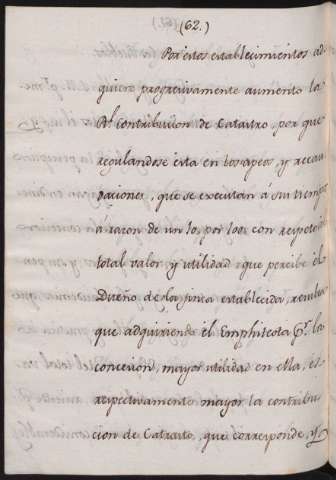 (62.)
Por estos establecimientos ad
quiere progresivamente aumento la
Rl. contribucion de Catastro, por que
regulandose esta en los apeos, y recau
daciones, que se executan á sus tiempos
á razon de un 10, por 100, con respeto al
total valor, y utilidad, que percibe el
Dueño de la finca establecida, resulta
que adquiriendo el Emphiteota pr. la
concesion, mayor utilidad en ella, es
respectivamente mayor la contribu
cion de Catrasto, que corresponde, y